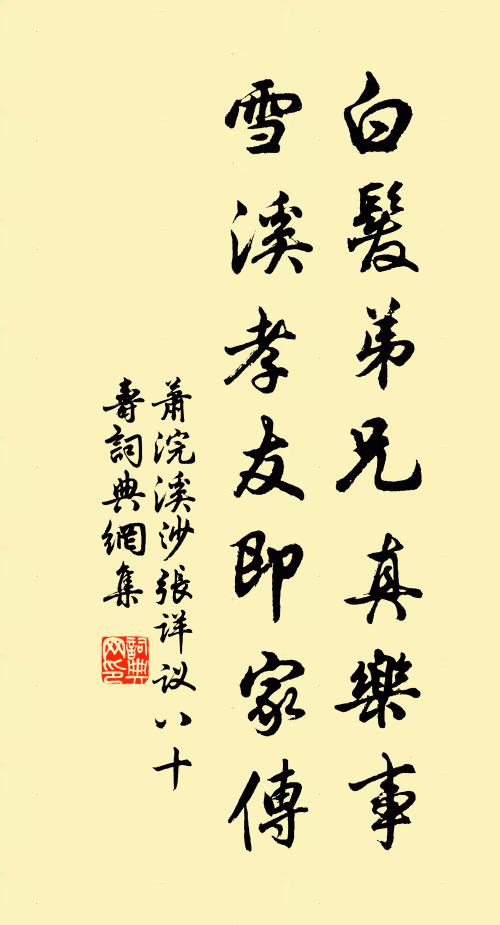 白髮弟兄真樂事
雪溪孝友即家傳
蕭浣溪沙張詳议八十
壽詞典網集
詞典
网印